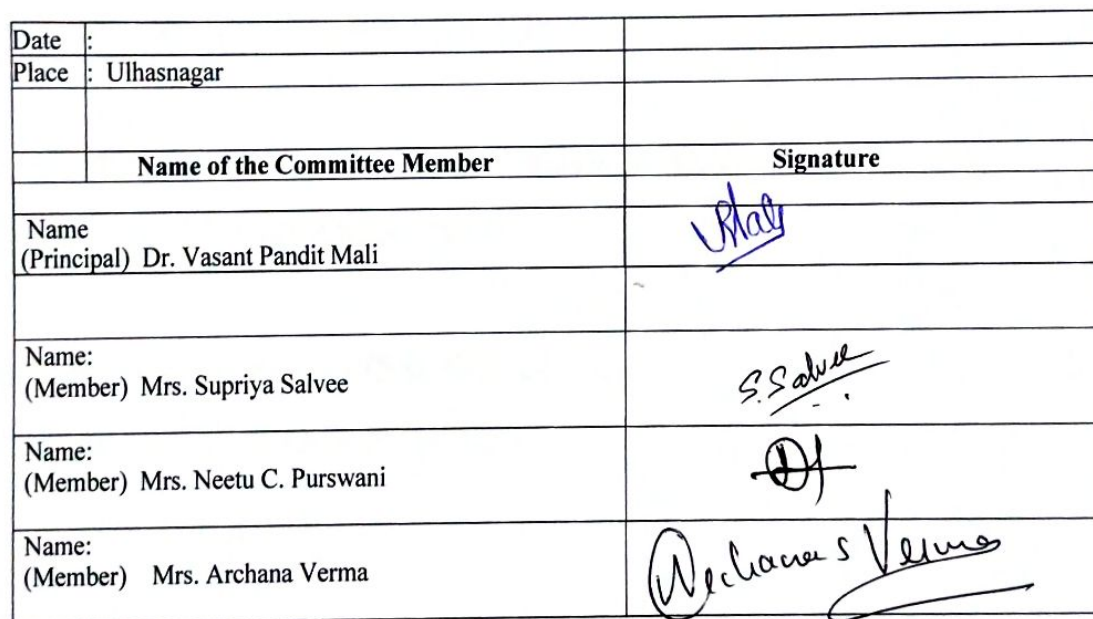 Date :
Place : Ulhasnagar
Name of the Committee Member Signature
Name
(Principal) Dr. Vasant Pandit Mali
Name:
(Member) Mrs. Supriya Salvee
S.Salvee
Name:
(Member) Mrs. Neetu C. Purswani
Name:
(Member) Mrs. Archana Verma
Archana S Verma